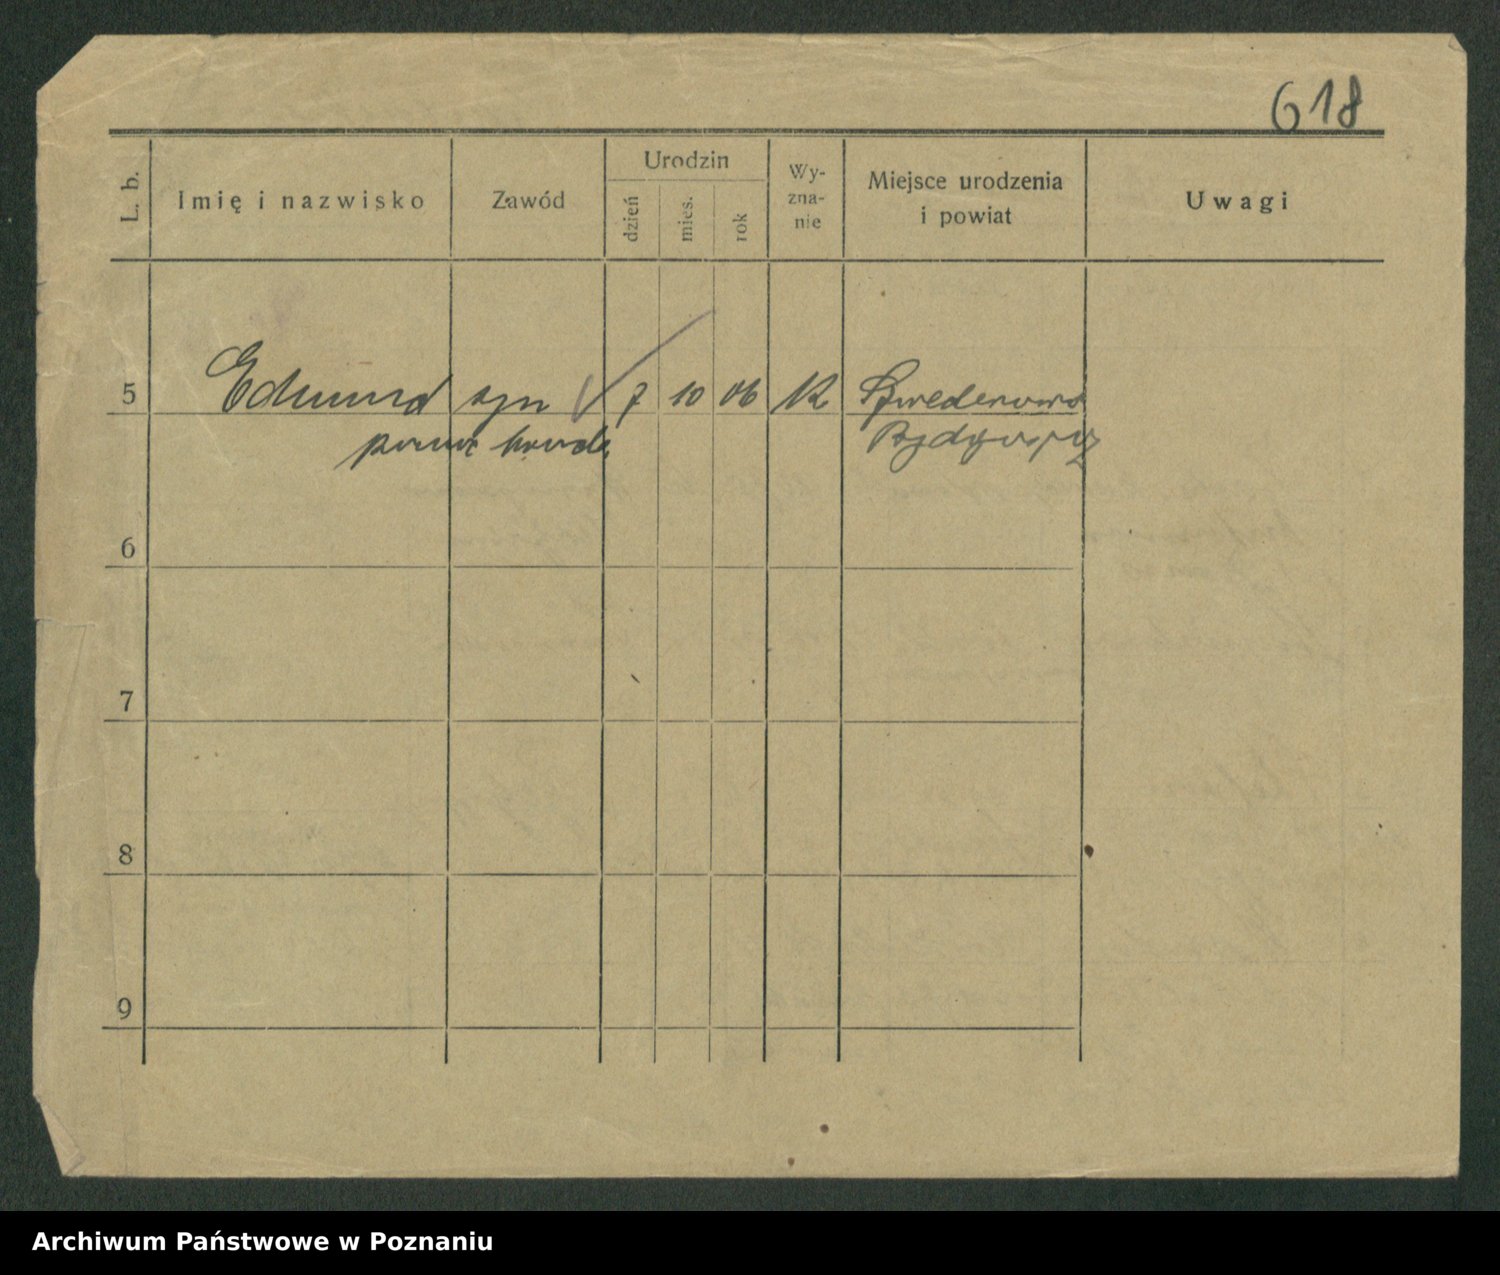 618
L. b.
Imię i nazwisko
Zawód
Urodzin
dzień
mies.
rok
Wy-
zna-
nie
Miejsce urodzenia
i powiat
Uwagi
5 Edmund syn 7 10 06 K Szwederowo
Bydgoszcz
6
7
8
9
Archiwum Państwowe w Poznaniu